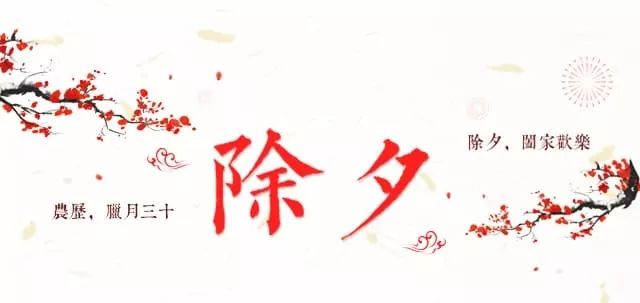 除夕，闔家歡樂
除夕
農歷，臘月三十